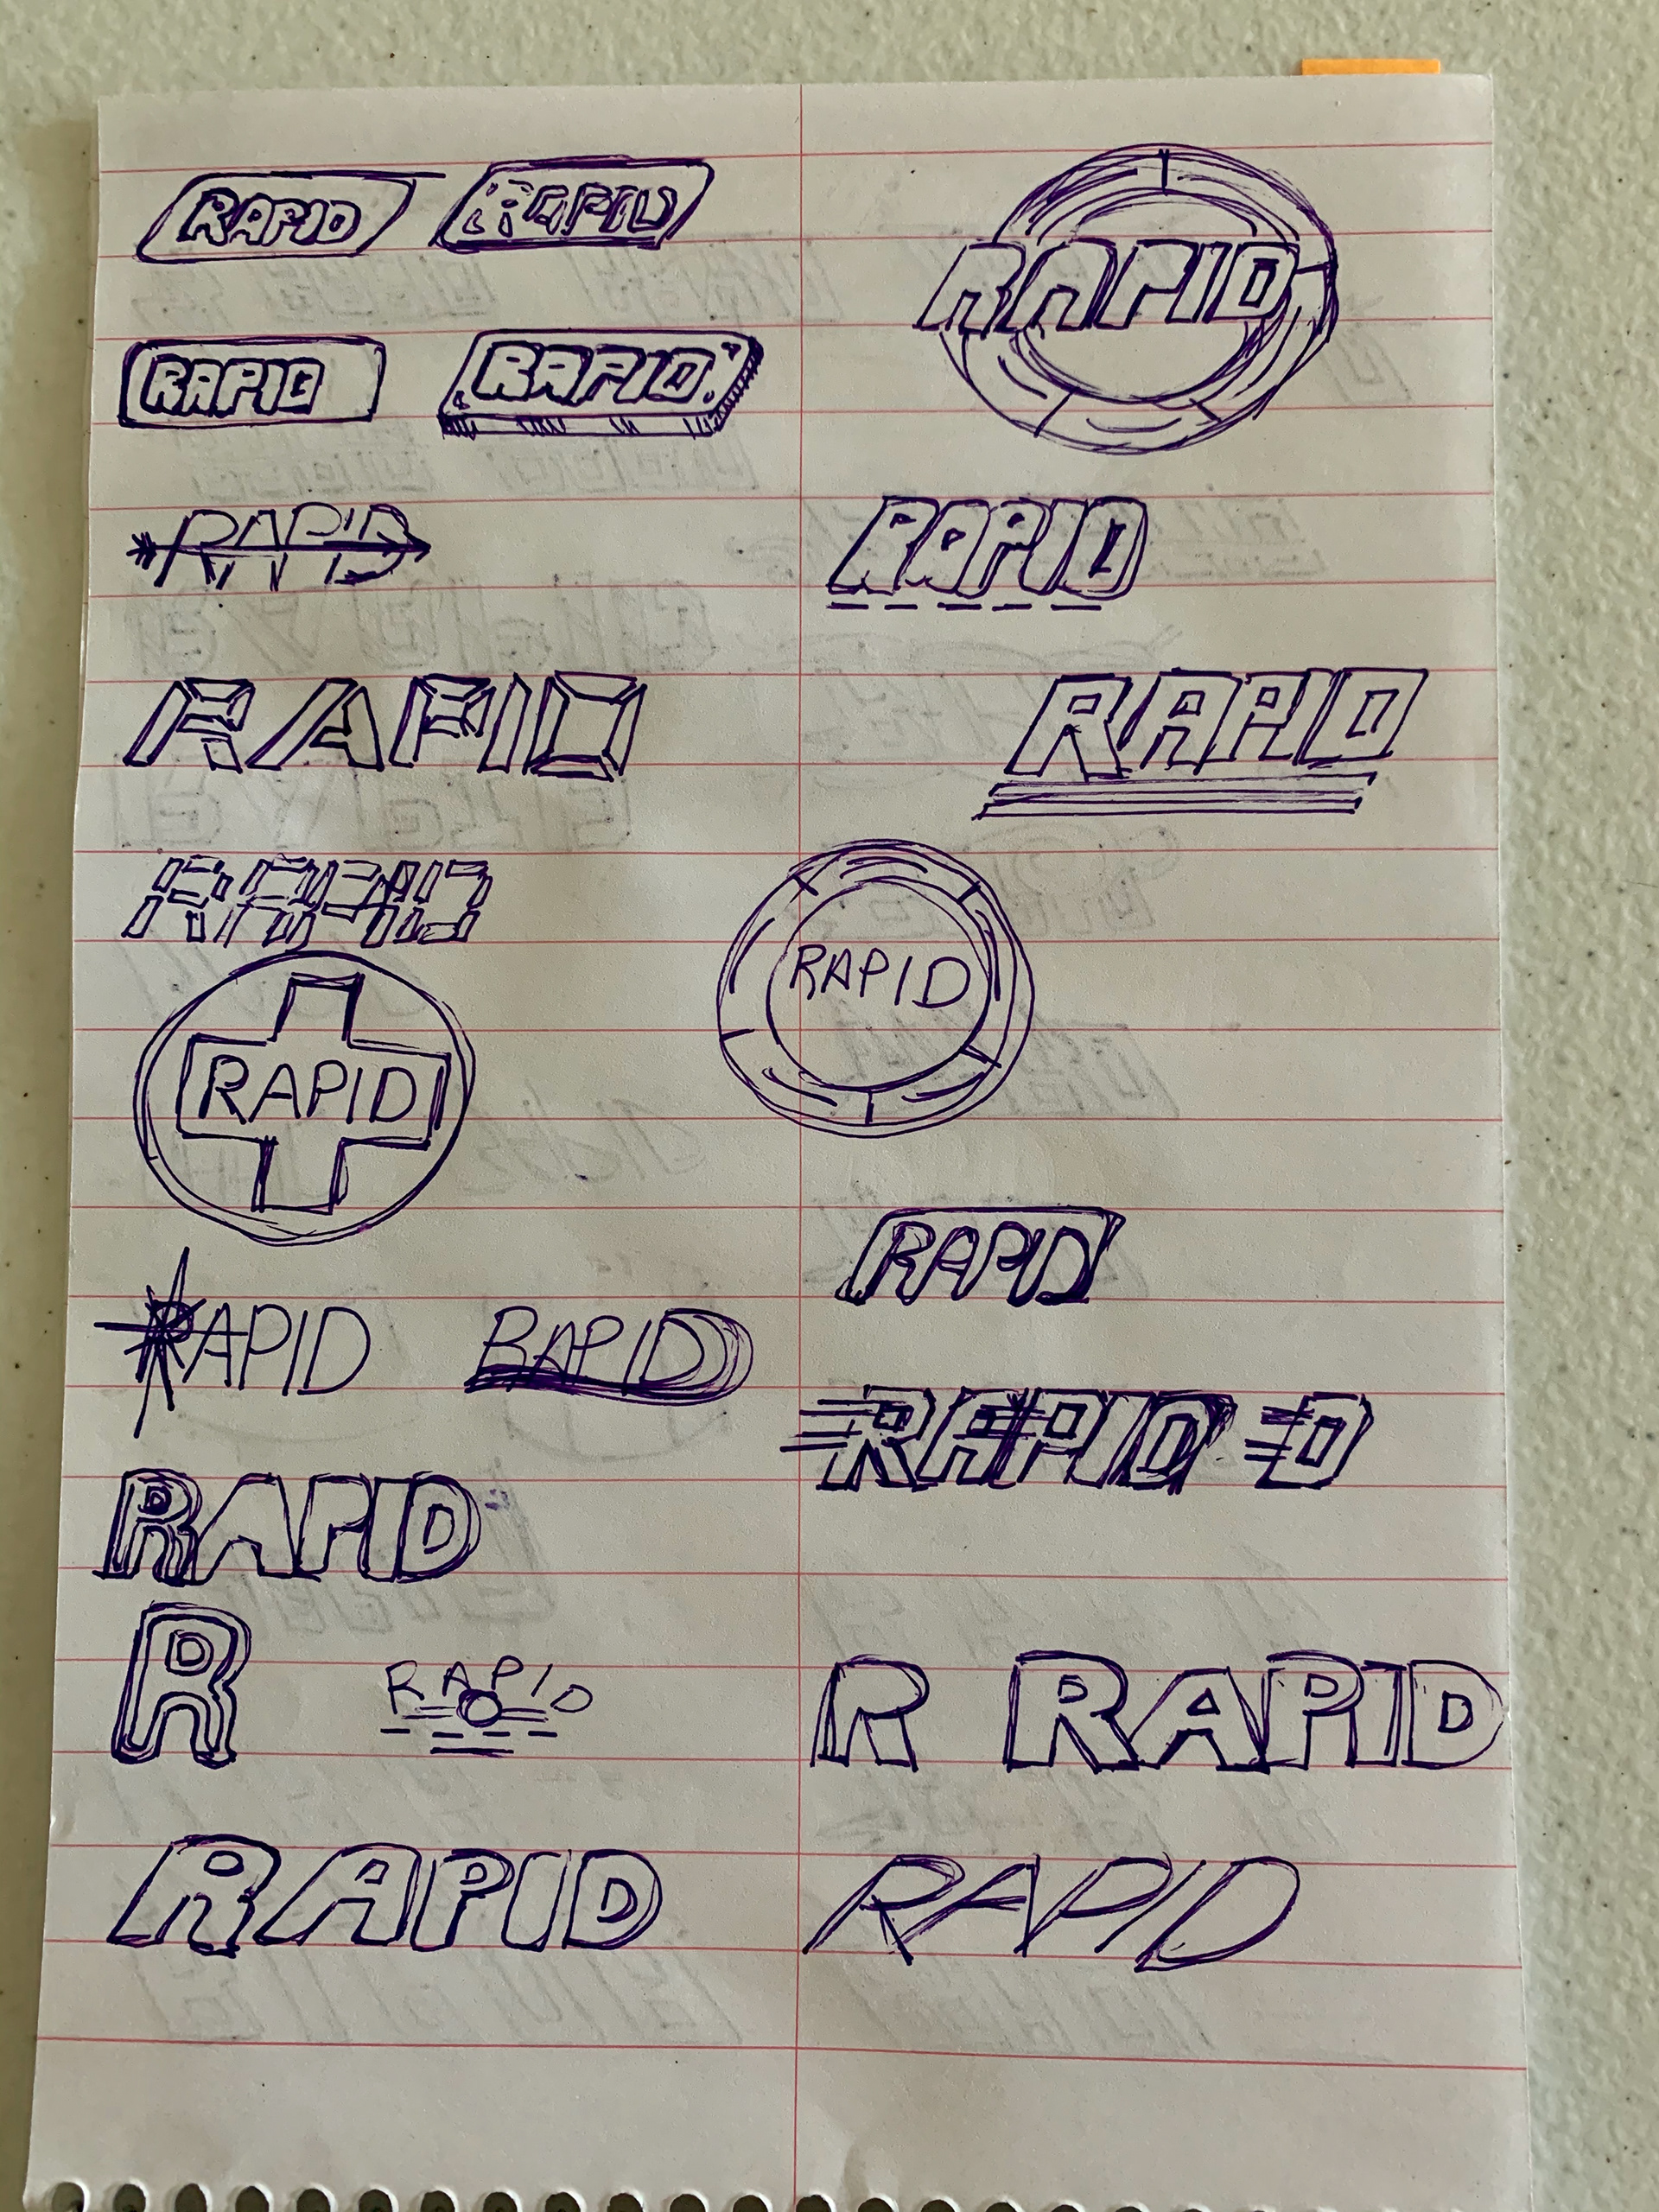 RAPID RAPID RAPID
RAPID RAPID
RAPID RAPID
RAPID RAPID
RAPID RAPID
RAPID
RAPID
RAPID RAPID
RAPID D
RAPID
R RAPID R RAPID
RAPID RAPID